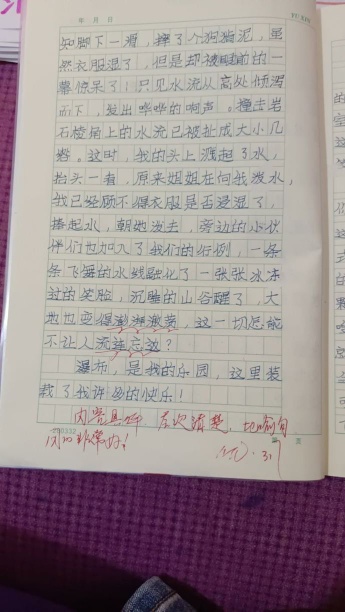 年 月 日
知脚下一滑，摔了个狗啃泥，虽
然衣服湿了，但是却被眼前的一
幕惊呆了！只见水流从高处倾泻
而下，发出哗哗的响声。撞击岩
石棱角上的水流已被扯成大小几
绺。这时，我的头上溅起了水，
抬头一看，原来姐姐在向我泼水，
我已经顾不得衣服是否浸湿了，
捧起水，朝她泼去，旁边的小伙
伴们也加入了我们的行列，一条
条飞舞的水线融化了一张张冰冻
过的笑脸，沉睡的山谷醒了，大
地也变得澎湃激荡，这一切怎能
不让人流连忘返？
瀑布，是我的乐园，这里装
载了我许多的快乐！
内容具体 层次清楚，
非常好！
优
3.31
页